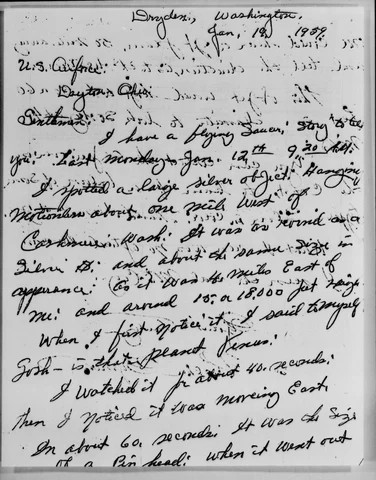 Dryden, Washington.
Jan, 19, 1959
U.S. Airforce
Dayton Ohio.
Gentlemen:
I have a flying Saucer Story to tell
you. Last monday Jan. 12th 9:30 A.M.
I spotted a large silver object. Hanging
Motionless about one mile West of
Cashmere, Wash. It was as round as a
Silver $. and about the same size in
appearance. As it was 4 miles East of
me. and around 15 or 18,000 feet high
When I first notice it, I said to myself
Gosh - is that planet Venus.
I watched it for about 40 seconds.
then I noticed it was moving East.
In about 60 seconds. It was the size
of a Pin head: when it went out